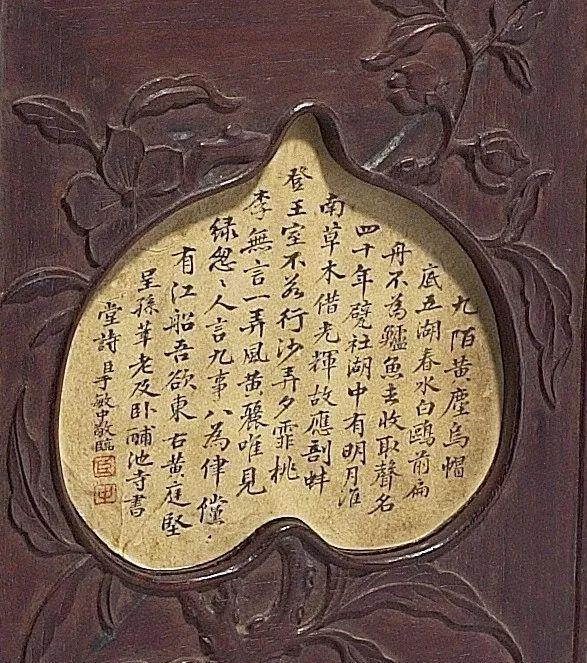 九陌黃塵烏帽
底五湖春水白鷗前扁
舟不為鱸魚去收取聲名
四十年甓社湖中有明月淮
南草木借光輝故應剖蚌
登王室不若行沙弄夕霏桃
李無言一再風黃鸝唯見
綠怱〻人言九事八為律儻
有江船吾欲東右黃庭堅
呈孫莘老及臥酺池寺書
堂詩 臣于敏中敬臨
臣
中